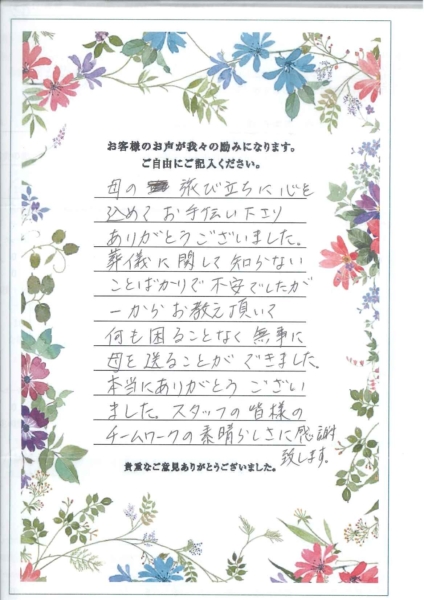 お客様のお声が我々の励みになります。
ご自由にご記入ください。
母の 旅び立ちに心を
込めて お手伝い下さり
ありがとうございました。
葬儀に関して知らない
ことばかりで不安でしたが
一からお教え頂いて
何も困ることなく無事に
母を送ることができました。
本当にありがとう ござい
ました。スタッフの皆様の
チームワークの素晴らしさに感謝
致します。
貴重なご意見ありがとうございました。